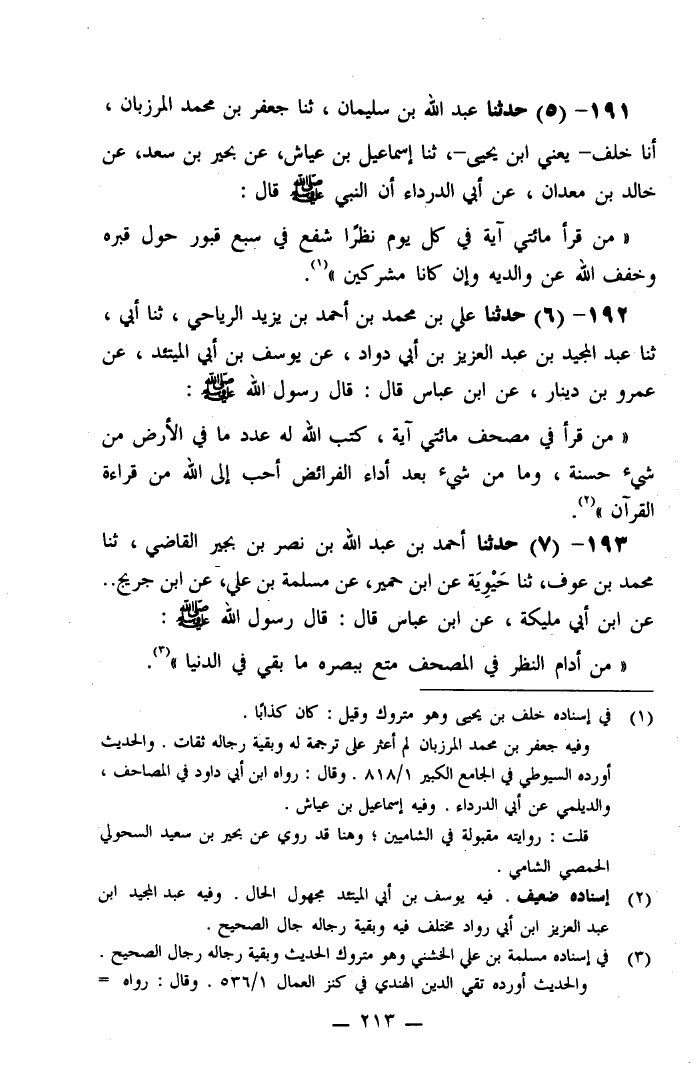 ١٩١- (٥) حدثنا عبد الله بن سليمان ، ثنا جعفر بن محمد المرزبان ،
أنا خلف- يعني ابن يحيى-، ثنا إسماعيل بن عياش، عن بحير بن سعد، عن
خالد بن معدان ، عن أبي الدرداء أن النبي ﷺ قال :
« من قرأ مائتي آية في كل يوم نظرًا شفع في سبع قبور حول قبره
وخفف الله عن والديه وإن كانا مشركين »(١).
١٩٢- (٦) حدثنا علي بن محمد بن أحمد بن يزيد الرياحي ، ثنا أبي ،
ثنا عبد المجيد بن عبد العزيز بن أبي دواد ، عن يوسف بن أبي الميتئد ، عن
عمرو بن دينار ، عن ابن عباس قال : قال رسول الله ﷺ :
« من قرأ في مصحف مائتي آية ، كتب الله له عدد ما في الأرض من
شيء حسنة ، وما من شيء بعد أداء الفرائض أحب إلى الله من قراءة
القرآن »(٢).
١٩٣- (٧) حدثنا أحمد بن عبد الله بن نصر بن بجير القاضي ، ثنا
محمد بن عوف، ثنا حَيْوِيَة عن ابن حمير، عن مسلمة بن علي، عن ابن جريج..
عن ابن أبي مليكة ، عن ابن عباس قال : قال رسول الله ﷺ :
« من أدام النظر في المصحف متع ببصره ما بقي في الدنيا »(٣).
(١) في إسناده خلف بن يحيى وهو متروك وقيل : كان كذابًا .
وفيه جعفر بن محمد المرزبان لم أعثر على ترجمة له وبقية رجاله ثقات . والحديث
أورده السيوطي في الجامع الكبير ٨١٨/١ . وقال : رواه ابن أبي داود في المصاحف ،
والديلمي عن أبي الدرداء . وفيه إسماعيل بن عياش .
قلت : روايته مقبولة في الشاميين ؛ وهنا قد روي عن بحير بن سعيد السحولي
الحمصي الشامي .
(٢) إسناده ضعيف . فيه يوسف بن أبي الميتئد مجهول الحال . وفيه عبد المجيد ابن
عبد العزيز ابن أبي رواد مختلف فيه وبقية رجاله جال الصحيح .
(٣) في إسناده مسلمة بن علي الخشني وهو متروك الحديث وبقية رجاله رجال الصحيح .
والحديث أورده تقي الدين الهندي في كنز العمال ٥٣٦/١ . وقال : رواه =
— ٢١٣ —